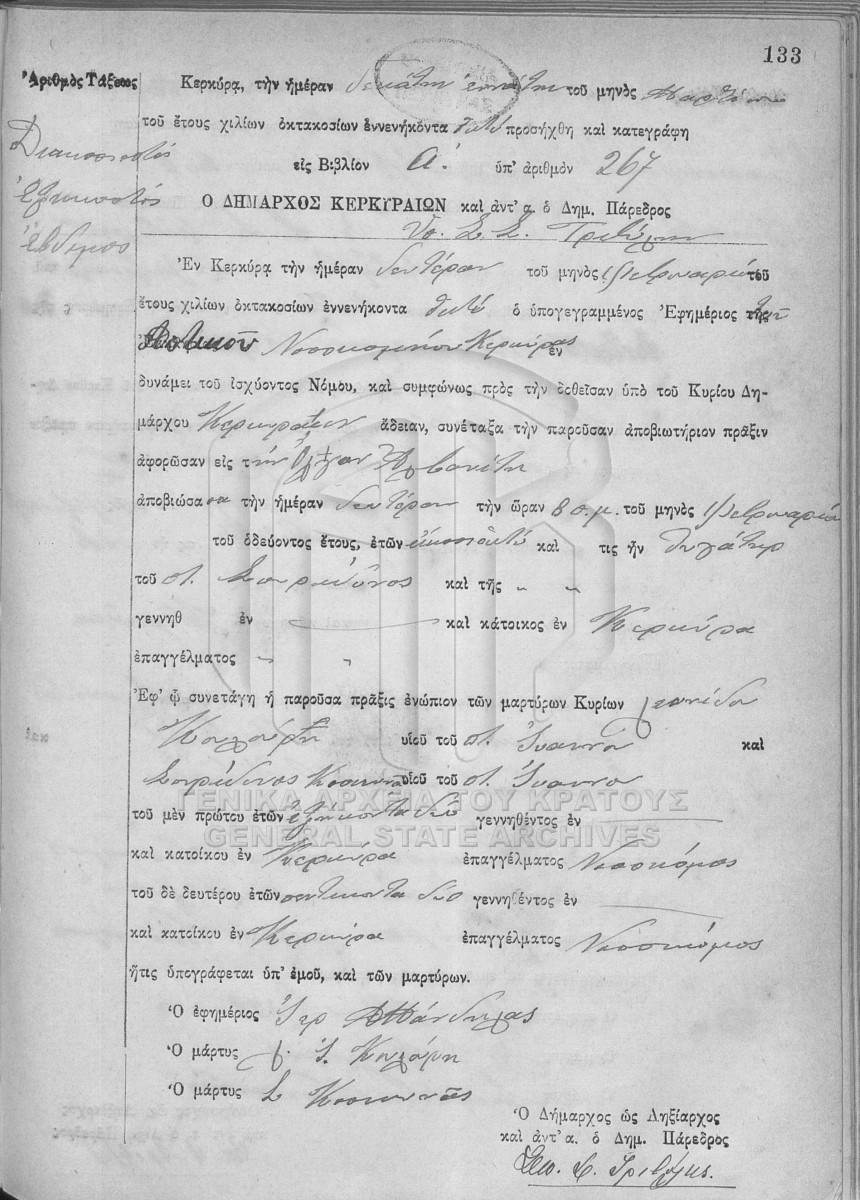 133
Ἀριθμὸς Τάξεως
Διακοσιοστός
ἑξηκοστός
ἕβδομος
Κερκύρᾳ, τὴν ἡμέραν δεκάτην ἐννάτην τοῦ μηνὸς Μαρτίου
τοῦ ἔτους χιλίων ὀκτακοσίων ἐννενήκοντα ὀκτώ προσήχθη καὶ κατεγράφη
εἰς Βιβλίον Α΄. ὑπ' ἀριθμὸν 267
Ο ΔΗΜΑΡΧΟΣ ΚΕΡΚΥΡΑΙΩΝ καὶ ἀντ' α. ὁ Δημ. Πάρεδρος
Ἐν Κερκύρᾳ τὴν ἡμέραν δευτέραν τοῦ μηνὸς Φεβρουαρίου τοῦ
ἔτους χιλίων ὀκτακοσίων ἐννενήκοντα ὀκτώ ὁ ὑπογεγραμμένος Ἐφημέριος τοῦ
Νοσοκομείου Κερκύρας ἐν
δυνάμει τοῦ ἰσχύοντος Νόμου, καὶ συμφώνως πρὸς τὴν δοθεῖσαν ὑπὸ τοῦ Κυρίου Δη-
μάρχου Κερκυραίων ἄδειαν, συνέταξα τὴν παροῦσαν ἀποβιωτήριον πρᾶξιν
ἀφορῶσαν εἰς τὴν Ὄλγαν Ἀρβανίτη
ἀποβιώσασα τὴν ἡμέραν δευτέραν τὴν ὥραν 8 π.μ. τοῦ μηνὸς Φεβρουαρίου
τοῦ ὁδεύοντος ἔτους, ἐτῶν εἴκοσι ὀκτώ καὶ τις ἦν θυγάτηρ
τοῦ π. Σπυρίδωνος καὶ τῆς " "
γεννηθ ἐν — καὶ κάτοικος ἐν Κερκύρᾳ
ἐπαγγέλματος " "
Ἐφ' ᾧ συνετάγη ἡ παροῦσα πρᾶξις ἐνώπιον τῶν μαρτύρων Κυρίων Λεωνίδα
υἱοῦ τοῦ π. Ἰωάννου καὶ
Σπυρίδωνος υἱοῦ τοῦ π. Ἰωάννου
τοῦ μὲν πρώτου ἐτῶν ἑξήκοντα δύο γεννηθέντος ἐν —
καὶ κατοίκου ἐν Κερκύρᾳ ἐπαγγέλματος Νοσοκόμος
τοῦ δὲ δευτέρου ἐτῶν πεντήκοντα δύο γεννηθέντος ἐν —
καὶ κατοίκου ἐν Κερκύρᾳ ἐπαγγέλματος Νοσοκόμος
ἥτις ὑπογράφεται ὑπ' ἐμοῦ, καὶ τῶν μαρτύρων.
Ὁ ἐφημέριος Ἱερ
Ὁ μάρτυς
Ὁ μάρτυς Σ
Ὁ Δήμαρχος ὡς Ληξίαρχος
καὶ ἀντ' α. ὁ Δημ. Πάρεδρος
ΓΕΝΙΚΑ ΑΡΧΕΙΑ ΤΟΥ ΚΡΑΤΟΥΣ
GENERAL STATE ARCHIVES